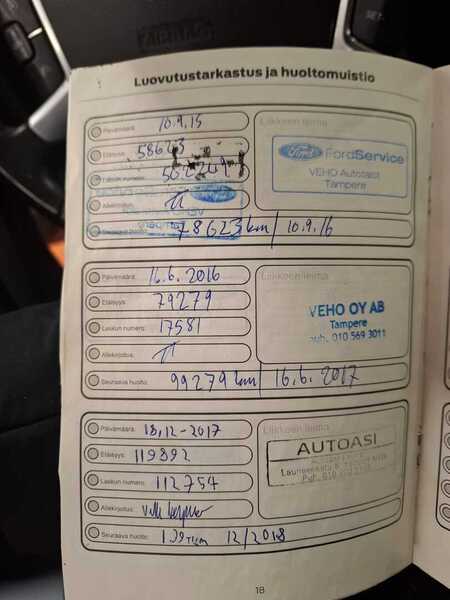 Luovutustarkastus ja huoltomuistio
Päivämäärä: 10.9.15
Liikkeen leima
Etäisyys: 58623
Ford FordService
VEHO Autotalot
Tampere
Allekirjoitus:
78623 km / 10.9.16
Päivämäärä: 16.6.2016
Liikkeen leima
Etäisyys: 79279
VEHO OY AB
Tampere
puh. 010 569 3011
Laskun numero: 17581
Allekirjoitus:
Seuraava huolto: 99279 km / 16.6.2017
Päivämäärä: 18.12-2017
Liikkeen leima
Etäisyys: 119892
AUTOASI
Laskun numero: 112754
Allekirjoitus:
Seuraava huolto: 12/2018
18